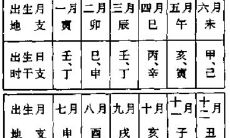 出生月 一月 二月 三月 四月 五月 六月
地支 寅 卯 辰 巳 午 未
出生日 壬、 巳、 壬、 丙、 亥、 甲、
时干支 丁 申 丁 辛 寅 己
出生月 七月 八月 九月 十月 十一月 十二月
地支 申 酉 戌 亥 子 丑